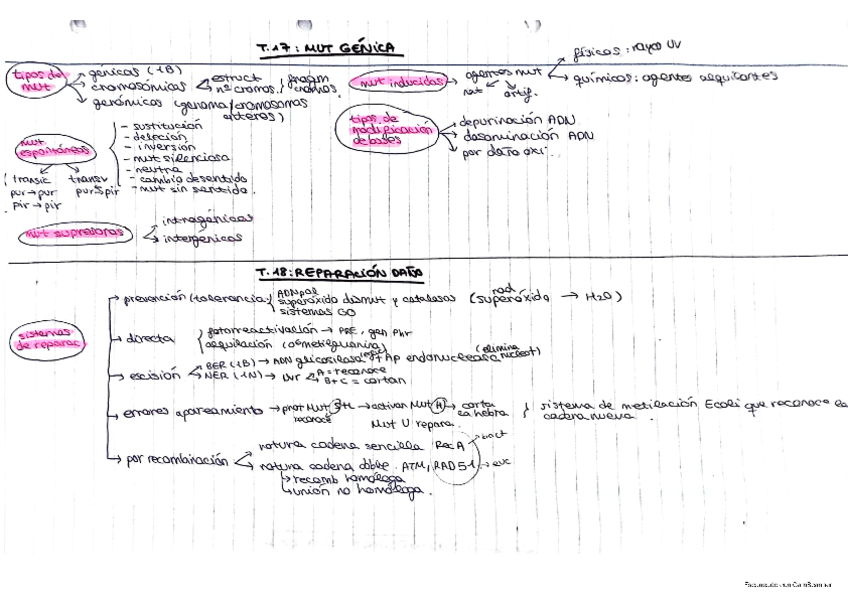 T.17: MUT GÉNICA
tipos de mut
génicas (1B)
cromosómicas
estruct
nº cromos.
fragm cromos.
genómicas (genoma/cromosomas enteros)
mut inducidas
agentes mut
nat
artif.
físicos: rayos UV
químicos: agentes alquilantes
tipos de modificación de bases
depurinación ADN
desaminación ADN
por daño oxi...
mut espontáneas
transic
pur → pur
pir → pir
transv
pur pir
- sustitución
- deleción
- inversión
- mut silenciosa
- neutra
- cambio de sentido
- mut sin sentido.
mut supresoras
intragénicas
intergénicas
T.18: REPARACIÓN DAÑO
sistemas de reparac
prevención (tolerancia)
ADNpol
superóxido dismut y catalasas (rad superóxido → H2O)
sistemas GO
directa
fotorreactivación → PRE, gen Phr
alquilación (O6metilguanina)
escisión
BER (1B) → ADN glicosilasa + Ap endonucleasa (elimina nucleot)
NER (1N) → uvr
A = reconoce
B+C = cortan
errores apareamiento → prot Mut S+L → activan Mut H → corta la hebra
reconoce
Mut U repara.
sistema de metilación Ecoli que reconoce la cadena nueva.
por recombinación
rotura cadena sencilla RecA → bact
rotura cadena doble. ATM, RAD51 → euc
recomb homóloga
unión no homóloga.
Escaneado con CamScanner